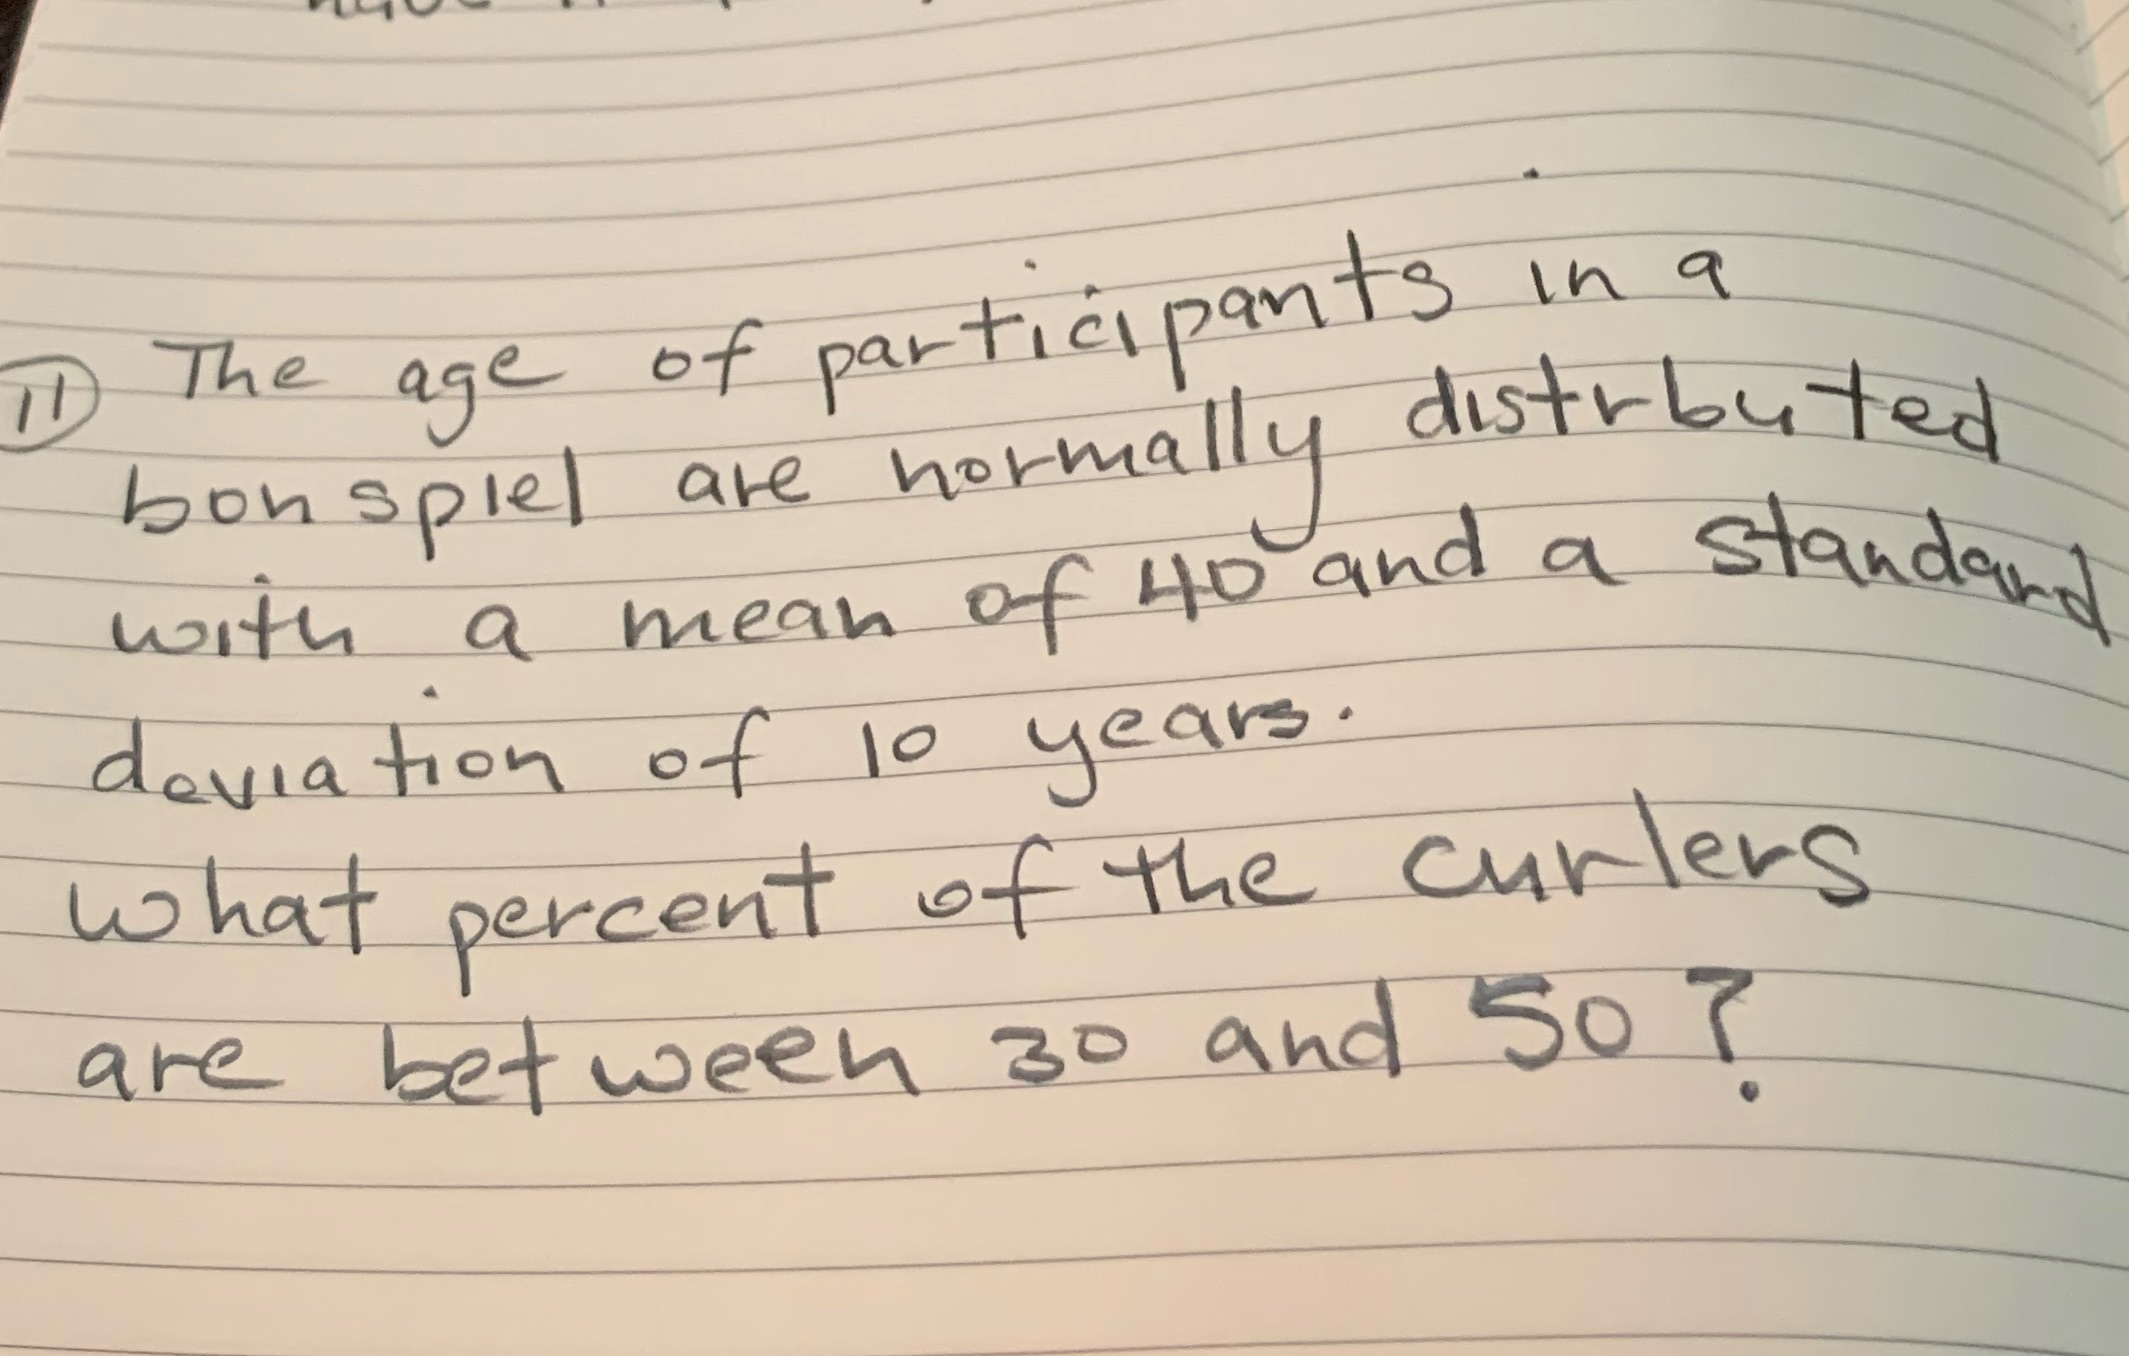 11 The age of participants in a
bonspiel are normally distrbuted
with a mean of 40 and a standard
deviation of 10 years.
what percent of the curlers
are between 30 and 50?